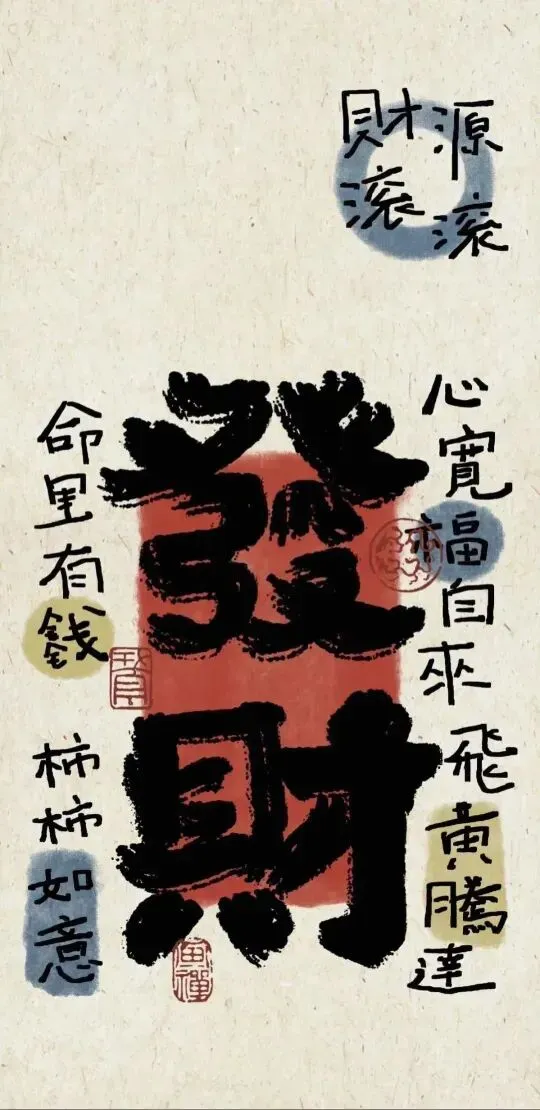 財源
滾滾
發財
心寬福自來
飛黃騰達
命里有錢
柿柿如意